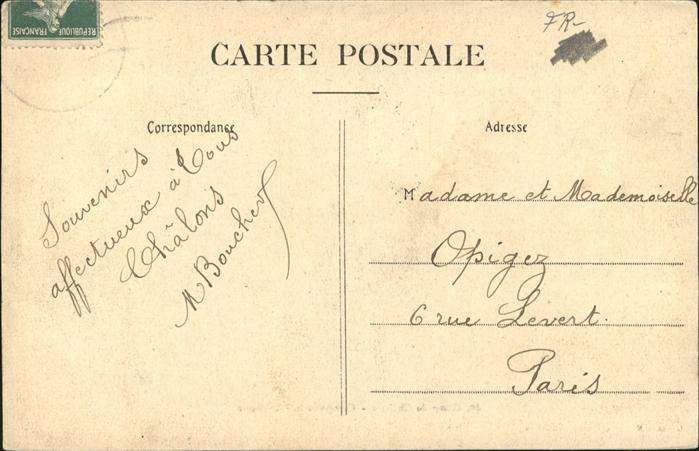 REPUBLIQUE FRANÇAISE
FR-
CARTE POSTALE
Correspondance
Adresse
Souvenirs
affectueux à tous
Châlons
M Boucher
Madame et Mademoiselle
Opigez
6 rue Levert.
Paris